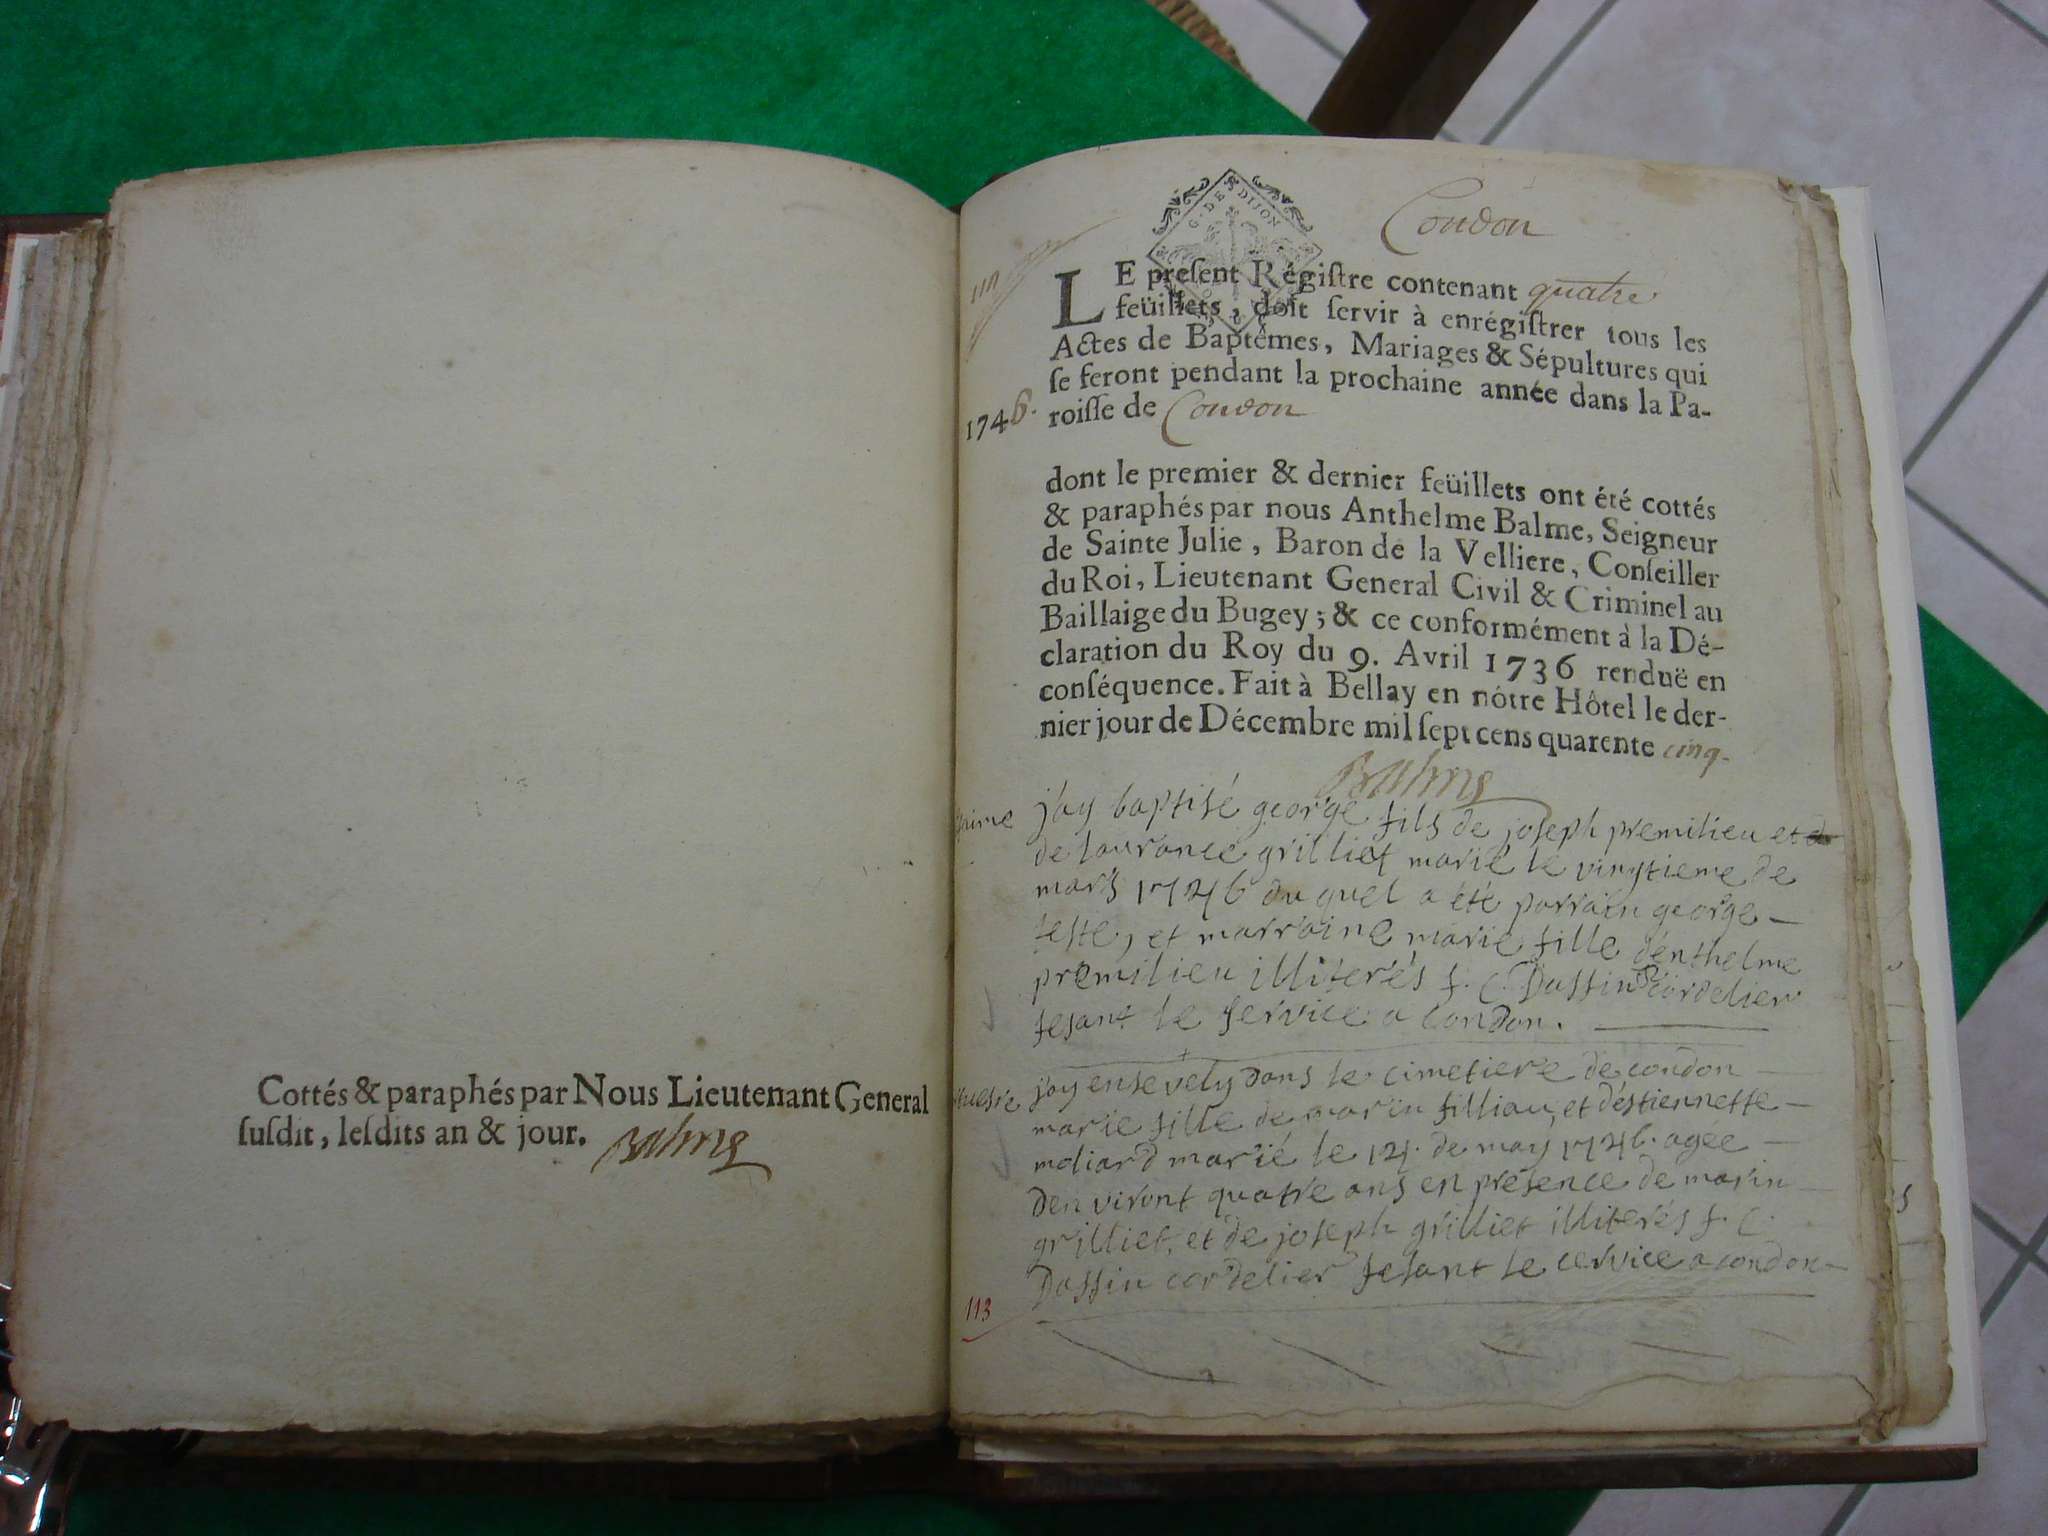 Cottés & paraphés par Nous Lieutenant General
susdit, lesdits an & jour. Balme
G. DE DIJON
Condon
LE present Régistre contenant quatre
feüillets, doit servir à enrégistrer tous les
Actes de Baptêmes, Mariages & Sépultures qui
se feront pendant la prochaine année dans la Pa-
1746.
roisse de Condon
dont le premier & dernier feüillets ont été cottés
& paraphés par nous Anthelme Balme, Seigneur
de Sainte Julie, Baron de la Velliere, Conseiller
du Roi, Lieutenant General Civil & Criminel au
Baillaige du Bugey; & ce conformément à la Dé-
claration du Roy du 9. Avril 1736 renduë en
conséquence. Fait à Bellay en nótre Hôtel le der-
nier jour de Décembre mil sept cens quarente cinq.
Balme
j'ay baptisé george fils de joseph premilieu et
de laurance grilliet marié le vingtieme de
mars 1746 du quel a été parrain george
teste, et marraine marie fille d'enthelme
premilieu illiterés f. C. Dassin cordelier
fesant le service a condon.
j'ay ensevely dans le cimetiere de condon
marie fille de marin filliau, et d'éstiennette
moliard marié le 14. de may 1746. agée
d'en viront quatre ans en présence de marin
grilliet, et de joseph grilliet illiterés f. C.
Dassin cordelier fesant le cervice a condon
113